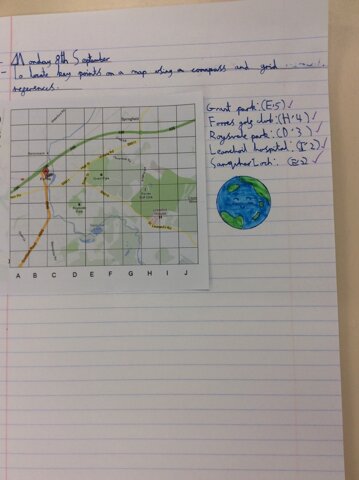 Monday 8th September
To locate key points on a map using a compass and grid
references.
Grant park: (E.5)
Forres golf club: (H.4)
Roysvale park: (D.3)
Leanchoil hospital: (I.2)
Sanquhar Loch: (E.2)
Springfield
A B C D E F G H I J